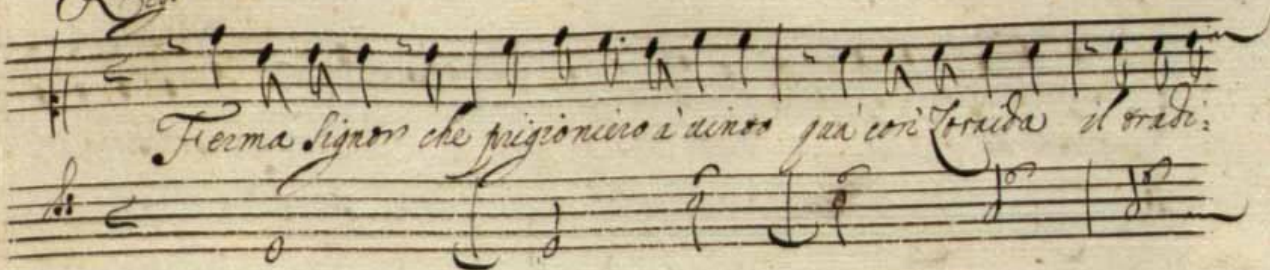 Ferma Signor che prigioniero è uinto quà con Zoraida il tradi: